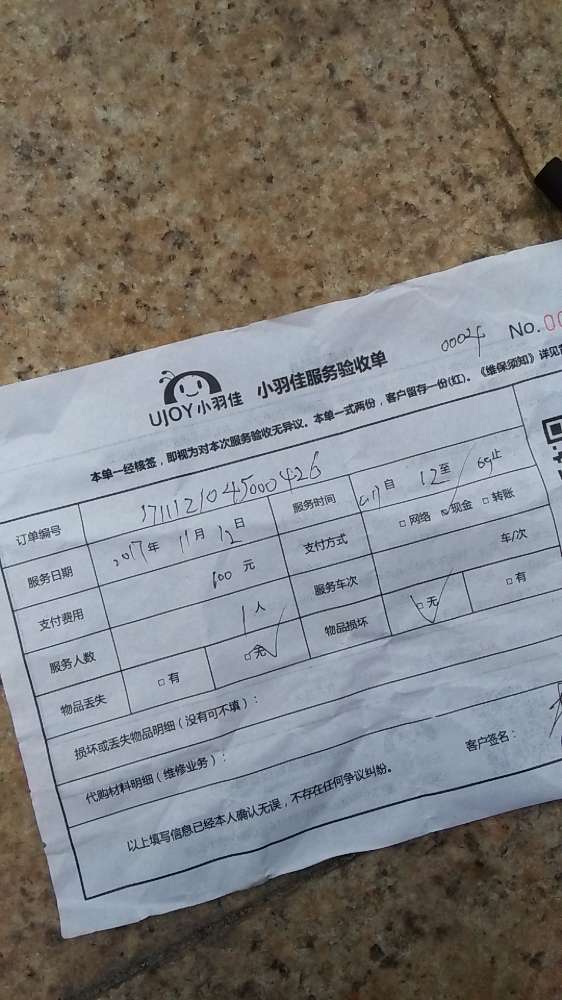 UJOY小羽佳 小羽佳服务验收单 0002 No.00
本单一经核签，即视为对本次服务验收无异议。本单一式两份，客户留存一份(红)。《维保须知》详见
订单编号 1711121045000426
服务日期 2017年 11月 12日 服务时间 自 12至 止
支付费用 600元 支付方式 □网络 □现金 □转账
服务人数 1人 服务车次 车/次
物品丢失 □有 □无 物品损坏 □无 □有
损坏或丢失物品明细（没有可不填）：
代购材料明细（维修业务）：
客户签名：
以上填写信息已经本人确认无误，不存在任何争议纠纷。